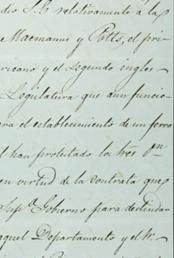 dio S. E. relativamente á la
e Macmanus y Potts, el pri-
ricano y el segundo ingles
Legislatura que aun funcio-
ra el establecimiento de un ferro
l han protestado los tres
en virtud de la contrata que
Sup.º Gobierno para deslindar
aquel Departamento y el Vi-